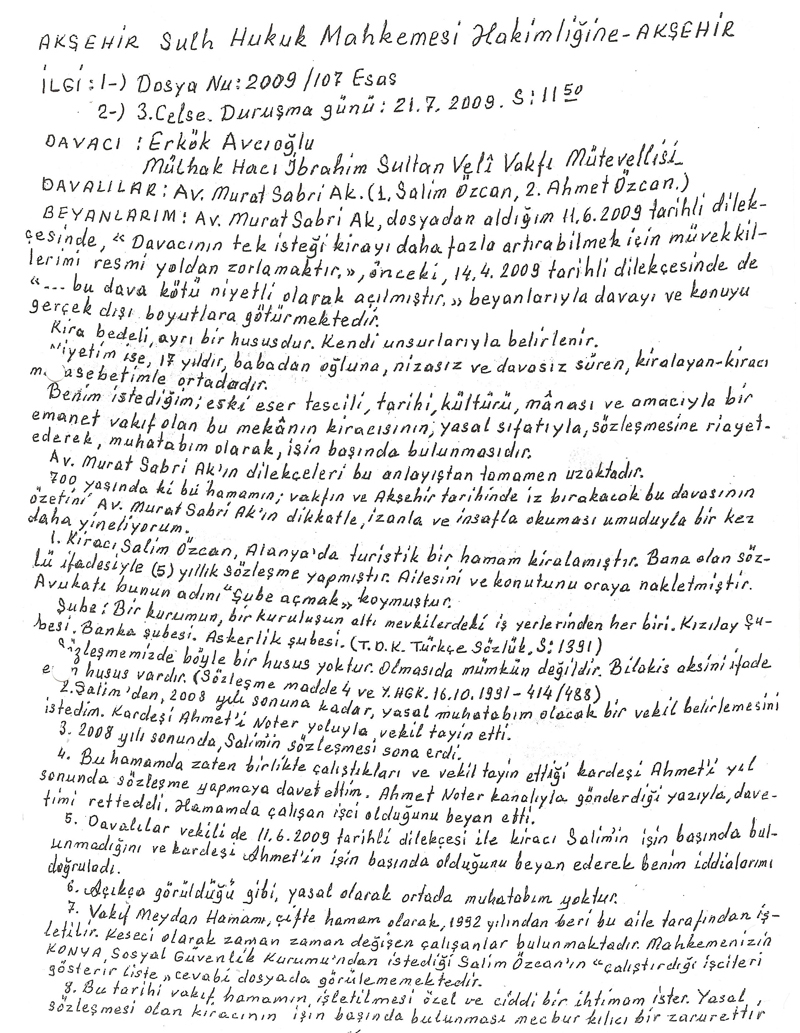 AKŞEHİR Sulh Hukuk Mahkemesi Hakimliğine-AKŞEHİR
İLGİ: 1-) Dosya Nu: 2009/107 Esas
2-) 3.Celse. Duruşma günü: 21.7.2009. S: 11 50
DAVACI : Erkök Avcıoğlu
Mülhak Hacı İbrahim Sultan Velî Vakfı Mütevellisi
DAVALILAR: Av. Murat Sabri Ak. (1. Salim Özcan, 2. Ahmet Özcan.)
BEYANLARIM: Av. Murat Sabri Ak, dosyadan aldığım 11.6.2009 tarihli dilek-
çesinde, "Davacının tek isteği kirayı daha fazla artırabilmek için müvekkil-
lerimi resmi yoldan zorlamaktır.», önceki, 14.4.2009 tarihli dilekçesinde de
"... bu dava kötü niyetli olarak açılmıştır.» beyanlarıyla davayı ve konuyu
gerçek dışı boyutlara götürmektedir.
Kira bedeli, ayrı bir husustur. Kendi unsurlarıyla belirlenir.
Niyetim ise, 17 yıldır, babadan oğluna, nizasız ve davasız süren, kiralayan-kiracı
asebetimle ortadadır.
Benim istediğim; eski eser tescili, tarihi, kültürü, mânası ve amacıyla bir
emanet vakıf olan bu mekânın kiracısının; yasal sıfatıyla, sözleşmesine riayet-
ederek, muhatabım olarak, işin başında bulunmasıdır.
Av. Murat Sabri Ak'ın dilekçeleri bu anlayıştan tamamen uzaktadır.
700 yaşında ki bu hamamın; vakfın ve Akşehir tarihinde iz bırakacak bu davasının
özetini Av. Murat Sabri Ak'ın dikkatle, izanla ve insafla okuması umuduyla bir kez
daha yineliyorum.
1. Kiracı Salim Özcan, Alanya'da turistik bir hamam kiralamıştır. Bana olan söz-
lü ifadesiyle (5) yıllık sözleşme yapmıştır. Ailesini ve konutunu oraya nakletmiştir.
Avukatı bunun adını "Şube açmak» koymuştur.
Şube: Bir kurumun, bir kuruluşun altı mevkilerdeki iş yerlerinden her biri. Kızılay Şu-
besi. Banka şubesi. Askerlik şubesi. (T.D.K. Türkçe Sözlük. S: 1391)
Sözleşmemizde böyle bir husus yoktur. Olmasıda mümkün değildir. Bilakis aksini ifade
husus vardır. (Sözleşme madde 4 ve Y.HGK. 16.10.1991-414/488)
2. Salim'den, 2008 yılı sonuna kadar, yasal muhatabım olacak bir vekil belirlemesini
istedim. Kardeşi Ahmet'i Noter yoluyla, vekil tayin etti.
3. 2008 yılı sonunda, Salim'in sözleşmesi sona erdi.
4. Bu hamamda zaten birlikte çalıştıkları ve vekil tayin ettiği kardeşi Ahmet'i yıl
sonunda sözleşme yapmaya davet ettim. Ahmet Noter kanalıyla gönderdiği yazıyla, dave-
timi rettedeli. Hamamda çalışan işci olduğunu beyan etti.
5. Davalılar vekili de 11.6.2009 tarihli dilekçesi ile kiracı Salim'in işin başında bul-
unmadığını ve kardeşi Ahmet'in işin başında olduğunu beyan ederek benim iddialarımı
doğruladı.
6. Açıkça görüldüğü gibi, yasal olarak ortada muhatabım yoktur.
7. Vakıf Meydan Hamamı, çifte hamam olarak, 1992 yılından beri bu aile tarafından iş-
letilir. Keseci olarak zaman zaman değişen çalışanlar bulunmaktadır. Mahkemenizin
KONYA, Sosyal Güvenlik Kurumu'ndan istediği Salim Özcan'ın "çalıştırdığı işcileri
gösterir liste» cevabı dosyada görülememektedir.
8. Bu tarihi vakıf hamamın, işletilmesi özel ve ciddi bir ihtimam ister. Yasal,
sözleşmesi olan kiracının işin başında bulunması mecbur kılıcı bir zarurettir